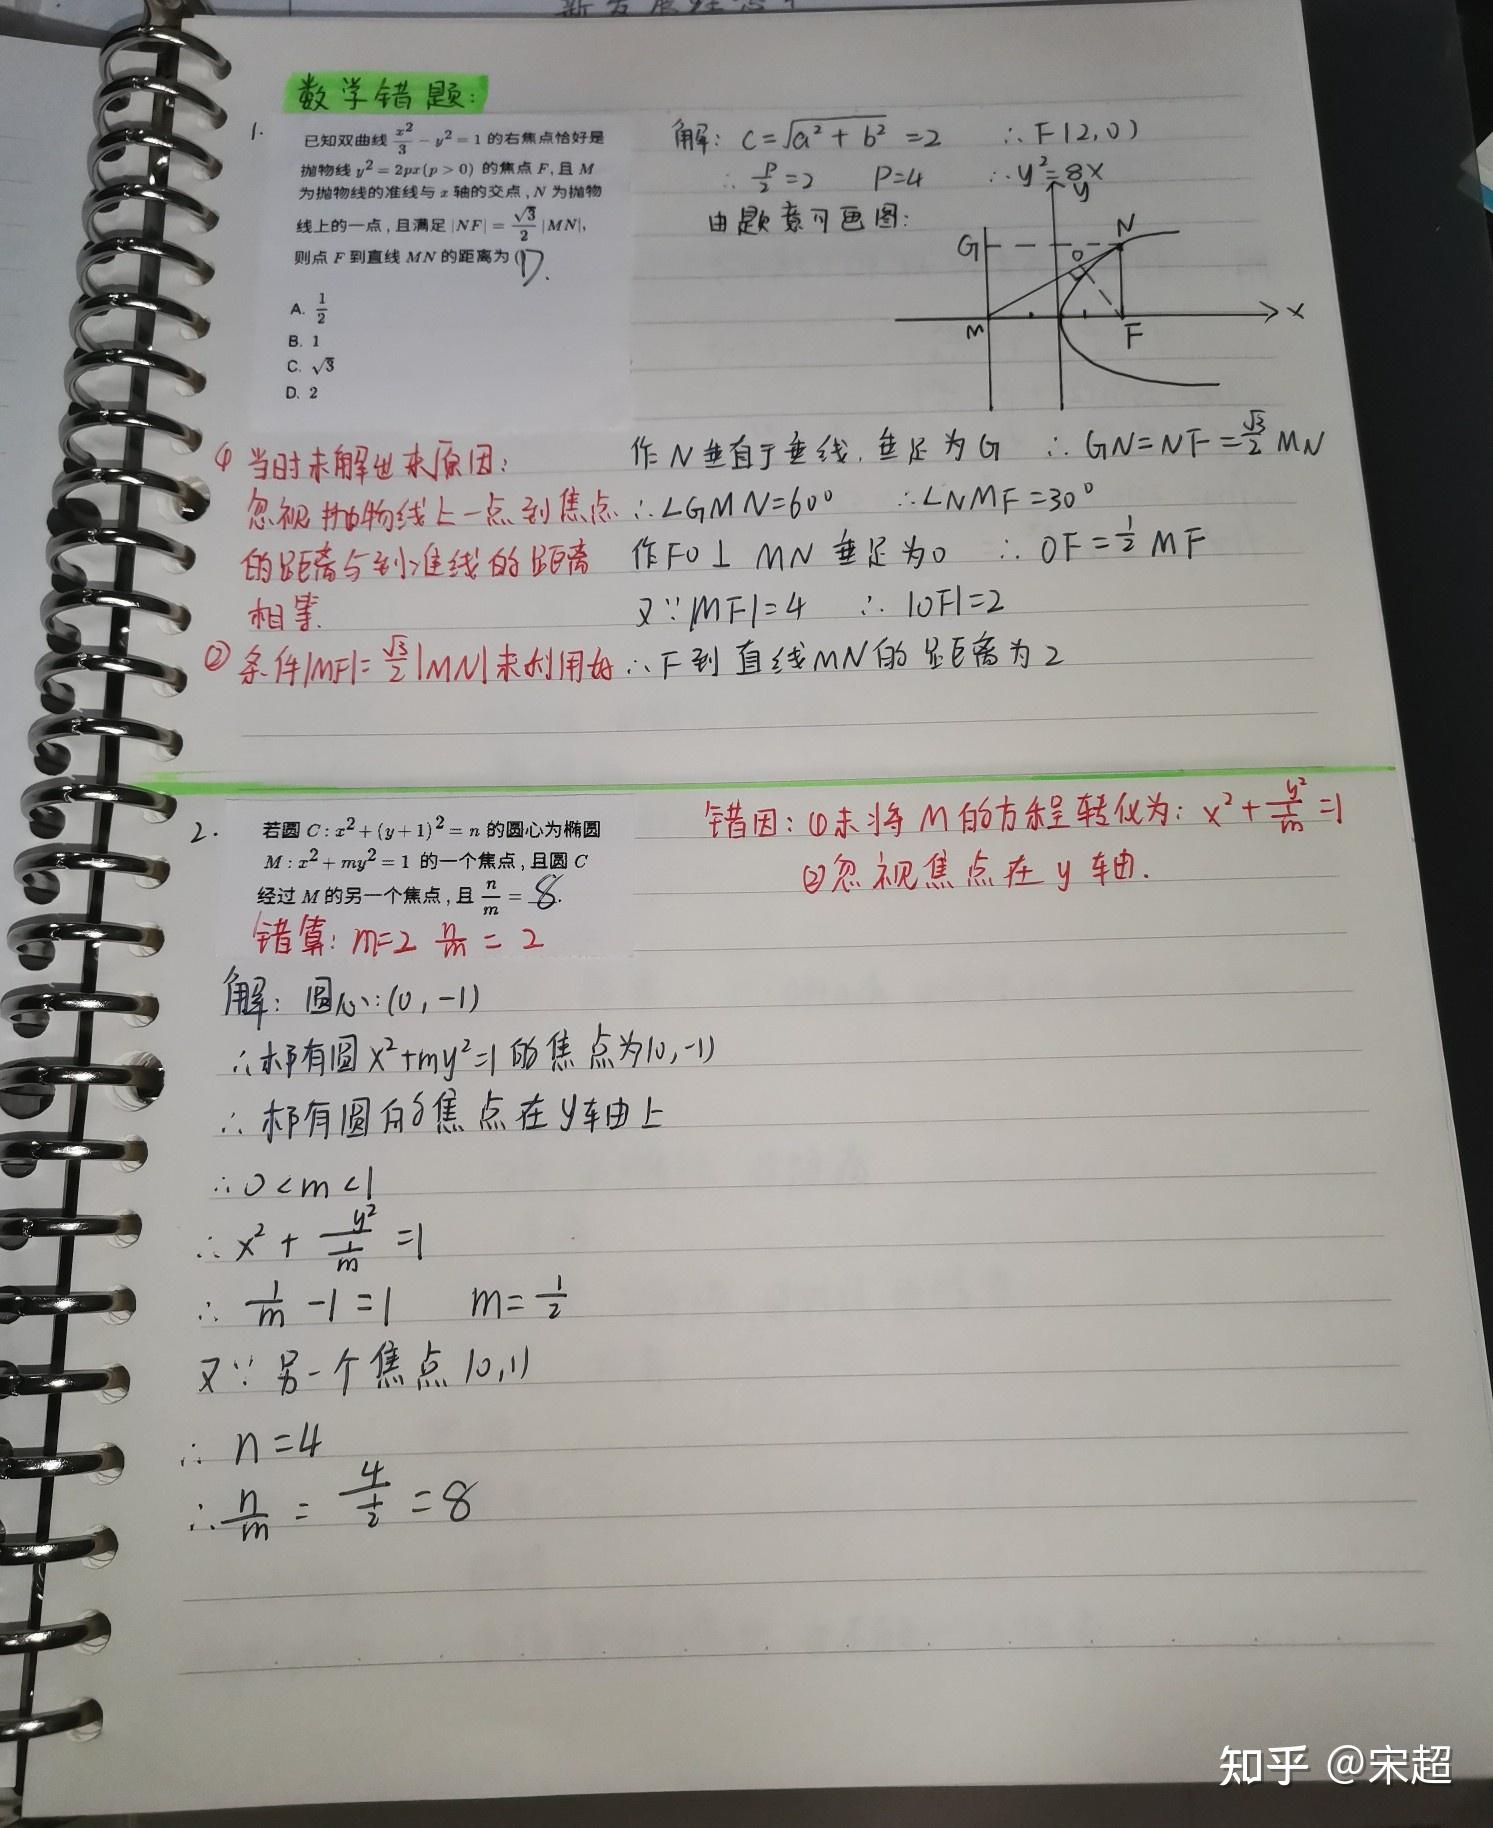 数学错题:
1.
已知双曲线 x²/3 - y² = 1 的右焦点恰好是
抛物线 y² = 2px(p > 0) 的焦点 F, 且 M
为抛物线的准线与 x 轴的交点, N 为抛物
线上的一点, 且满足 |NF| = √3/2 |MN|,
则点 F 到直线 MN 的距离为 ( D.
A. 1/2
B. 1
C. √3
D. 2
解: C=√a²+b² =2 ∴F(2,0)
∴ p/2=2 P=4 ∴y²=8x
由题意可画图:
y
G
N
O
M
F
x
① 当时未解出来原因:
忽视抛物线上一点到焦点
的距离与到准线的距离
相等.
② 条件|MF|=√3/2|MN|未利用好
作N垂直于垂线, 垂足为G ∴GN=NF=√3/2 MN
∴∠GMN=60° ∴∠NMF=30°
作FO⊥MN 垂足为O ∴OF=1/2 MF
又∵|MF|=4 ∴|OF|=2
∴F到直线MN的距离为2
2.
若圆 C : x² + (y + 1)² = n 的圆心为椭圆
M : x² + my² = 1 的一个焦点, 且圆 C
经过 M 的另一个焦点, 且 n/m = 8.
错算: m=2 n/m = 2
错因: ①未将M的方程转化为: x²+y²/(1/m)=1
②忽视焦点在y轴.
解: 圆心:(0,-1)
∴椭圆x²+my²=1的焦点为(0,-1)
∴椭圆的焦点在y轴上
∴0<m<1
∴x²+y²/(1/m)=1
∴1/m-1=1 m=1/2
又∵另一个焦点(0,1)
∴n=4
∴n/m=4/(1/2)=8
知乎 @宋超